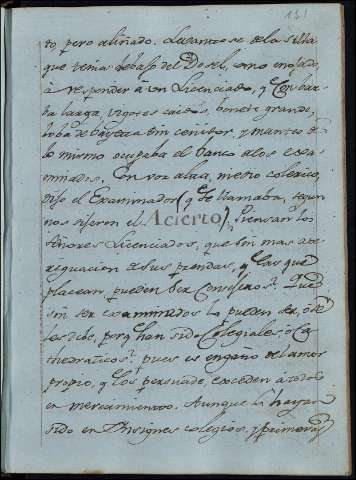 151
to, pero aliñado. Levantose de la silla
que tenia debajo del Dosel, como enojado,
à responder à un Licenciado, q̃ con bar-
ba larga, vigotes caidos, bonete grande,
loba de bayeta sin ceñidor, y manteo de
lo mismo ocupaba el banco à los exa-
minados. En voz alta, medio colerico,
dijo el Examinador (q̃ se llamaba, segun
nos dijeron el Acierto) Piensan los
señores Licenciados, que sin mas ave-
riguacion de sus prendas, y las que
placean, pueden ser Consejeros. Que
sin ser examinados la pueden ser, ò se
les debe, porq̃ han sido Colegiales, ò Ca-
thedraticos. pues es engaño del amor
propio, q̃ los persuade, exceden à todos
en merecimientos. Aunque hayan
sido en Insignes colegios, y primeras